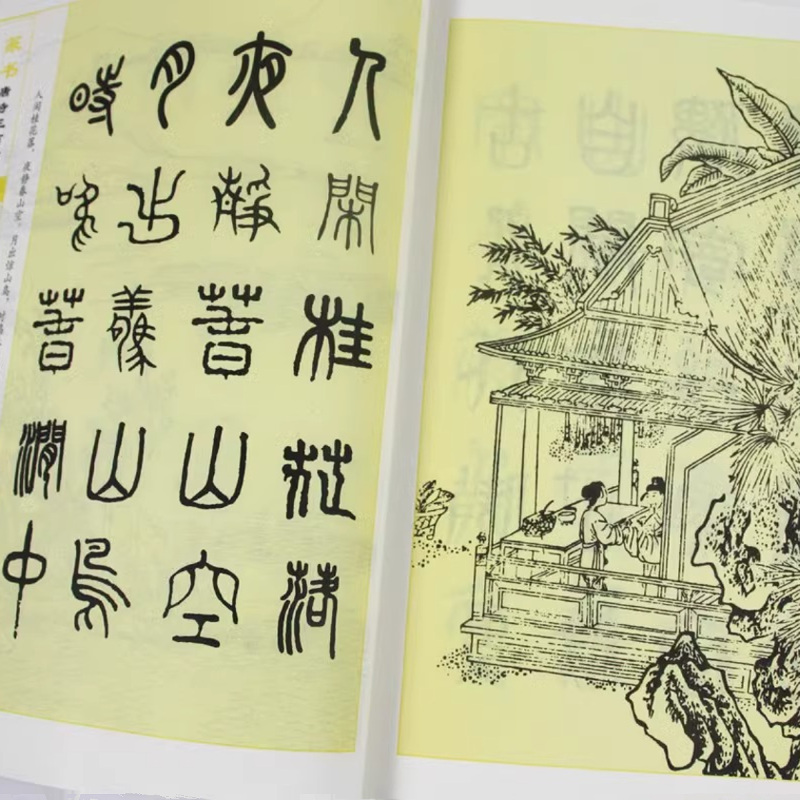 人閑桂花落
夜靜春山空
月出驚山鳥
時鳴春澗中
人闲桂花落，夜静春山空。月出惊山鸟，时鸣
篆书
唐诗三